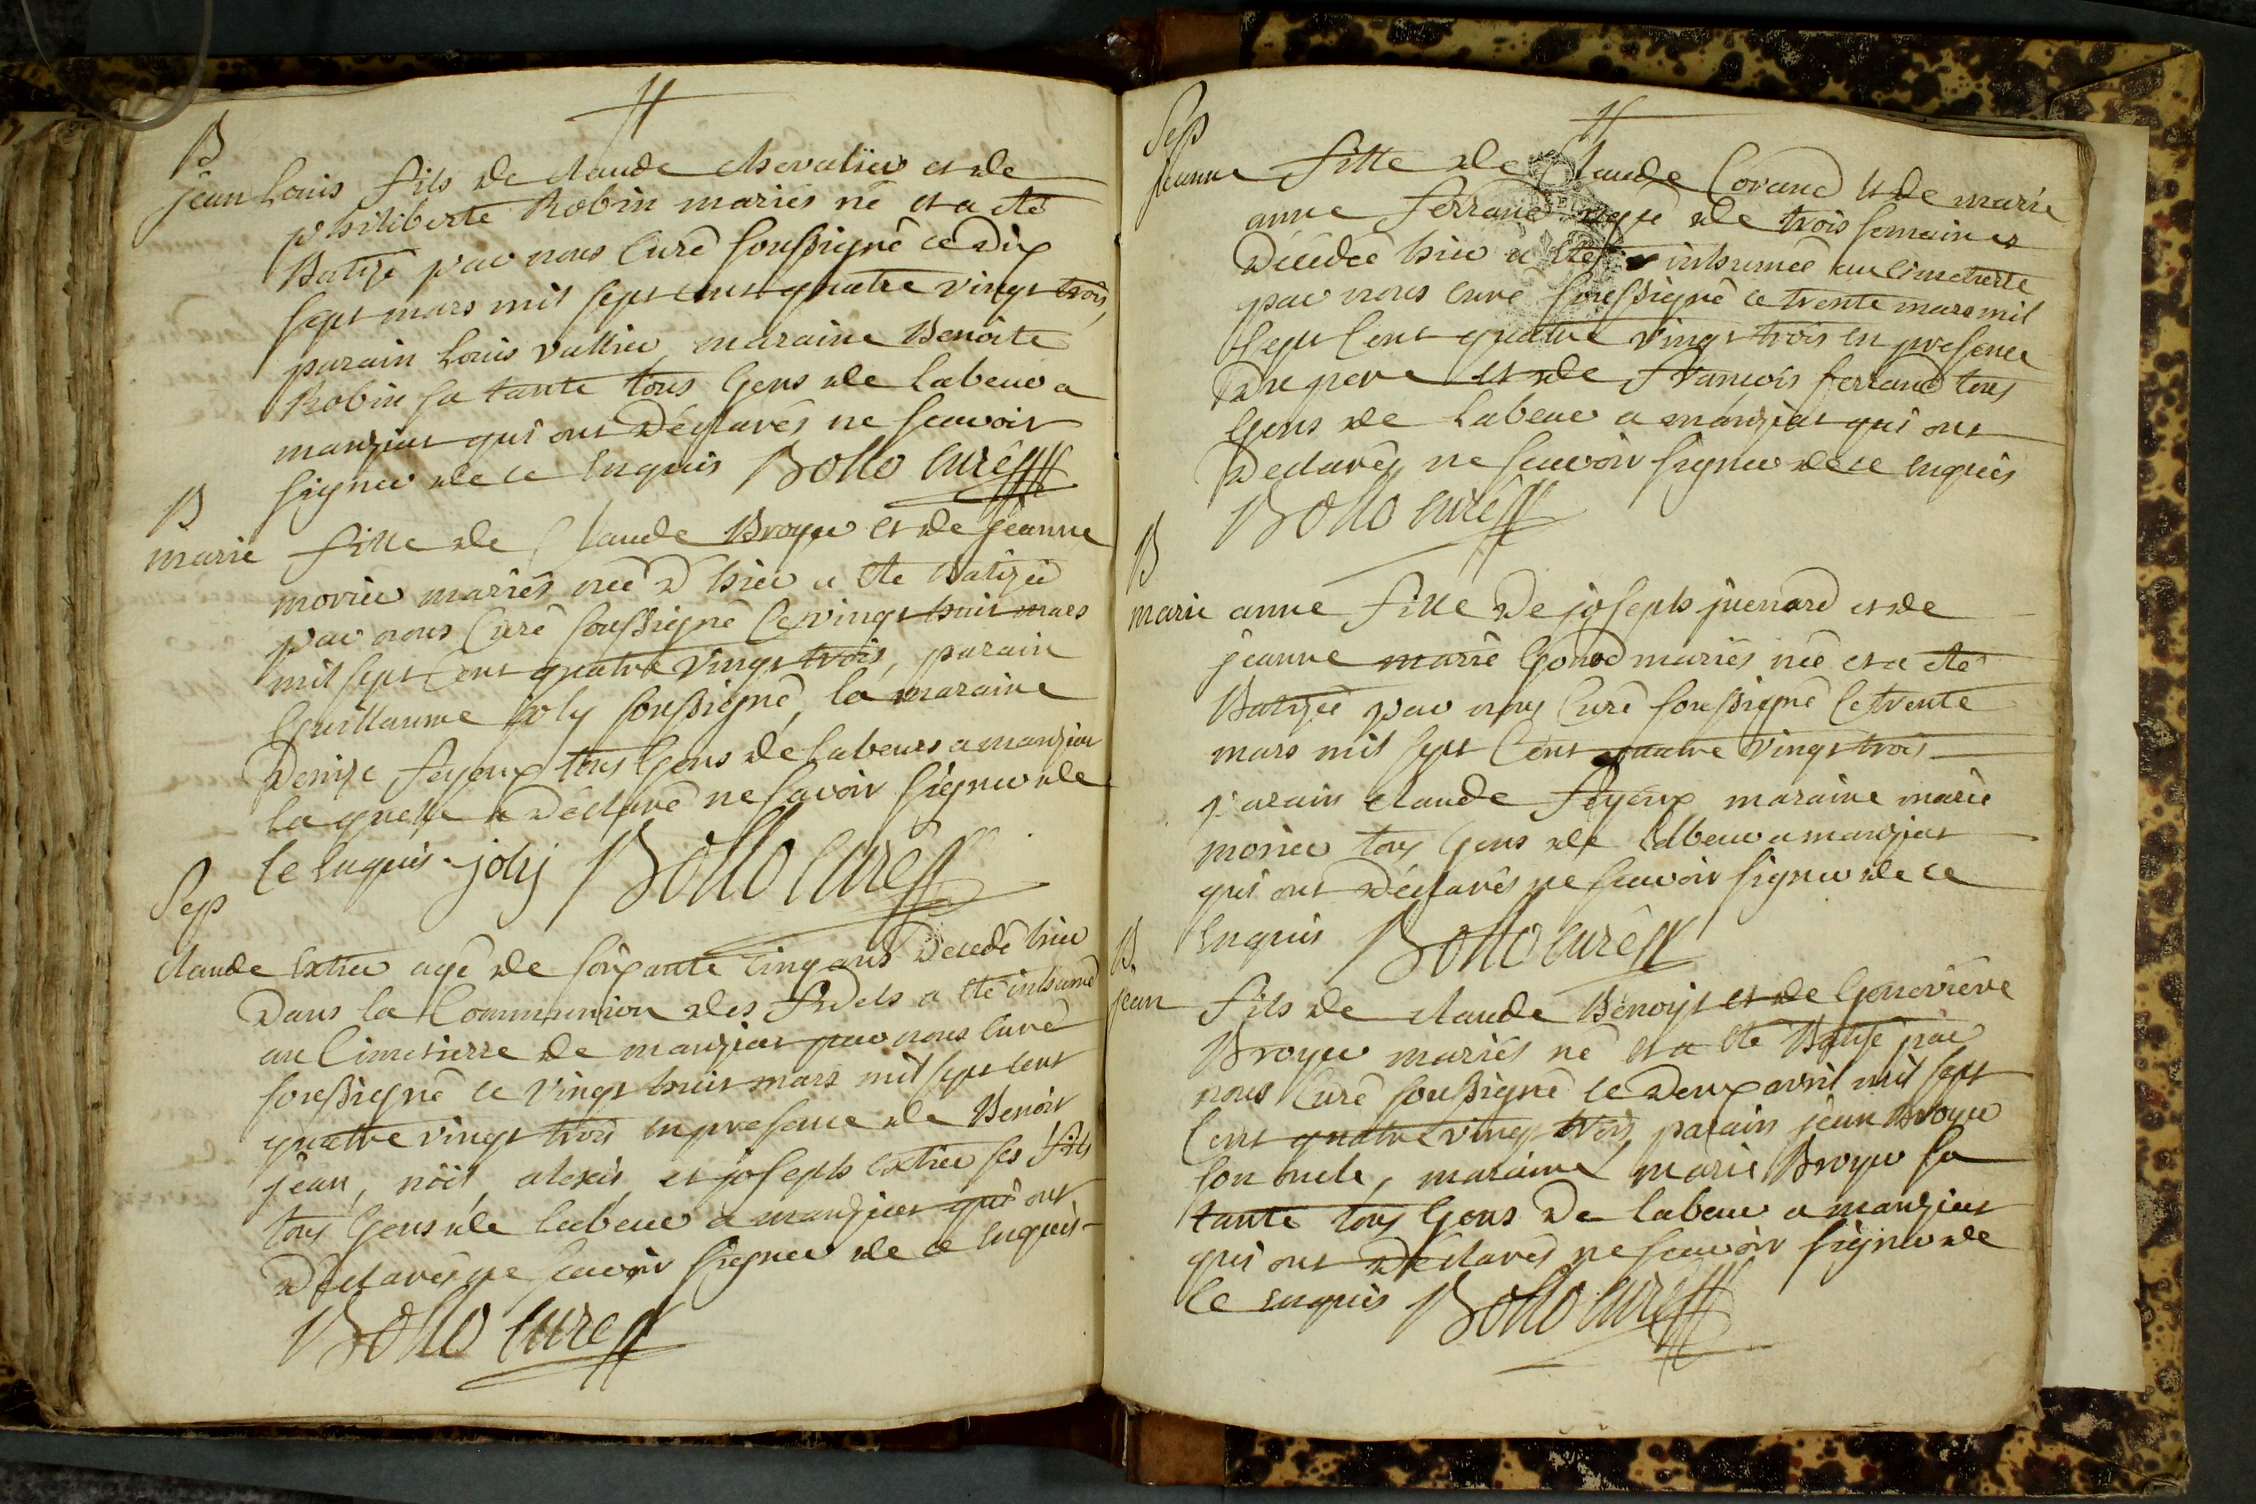 B
jean Louis fils de claude chevalier et de
philiberte Robin mariés né et a eté
Batizé par nous Curé soussigné ce dix
sept mars mil sept cent quatre vingt trois,
parain Louis vallier, maraine Benoite
Robin sa tante tous Gens de labeur a
manziat qui ont déclarés ne scavoir
signer de ce enquis Bollo curé
B
marie fille de Claude Broyer et de jeanne
morier mariés née d'hier a eté batizée
par nous Curé soussigné ce vingt huit mars
mil sept Cent quatre vingt trois, parain
Guillaume joly soussigné, la maraine
Denize feyeux tous Gens de labeurs a manziat
laquelle a déclaré ne savoir signer de
ce enquis joly Bollo curé
Sep
claude extier agé de soixante cinq ans decedé hier
dans la Communion des fidels a eté inhumé
au Cimetierre de manziat par nous curé
soussigné ce vingt huit mars mil sept cent
quatre vingt trois en presence de Benoit
jean, nöel alexis et joseph extier ses fils
tous Gens de labeur a manziat qui ont
déclarés ne scavoir signer de ce enquis
Bollo Curé
Sep
jeanne fille de Claude Corand et de marie
anne ferrand agée de trois semaines
décédée hier a eté inhumée au cimetierre
par nous curé soussigné ce trente mars mil
sept Cent quatre vingt trois en presence
du pere et de francois ferrand tous
Gens de labeur a manziat qui ont
declarés ne scavoir signer de ce enquis
Bollo curé
B
marie anne fille de joseph juenard et de
jeanne marie Gonod mariés née et a eté
Batizée par nous Curé soussigné ce trente
mars mil sept Cent quatre vingt trois
parain claude feyeux maraine marie
morier tous Gens de labeur a manziat
qui ont déclarés ne scavoir signer de ce
enquis Bollo curé
B.
jean fils de claude Benoist et de Geneviéve
Broyer mariés né et a eté Batizé par
nous Curé soussigné ce deux avril mil sept
Cent quatre vingt trois, parain jean Broyer
son oncle, maraine marie Broyer sa
tante tous Gens de labeur a manziat
qui ont declarés ne scavoir signer de
ce enquis Bollo curé